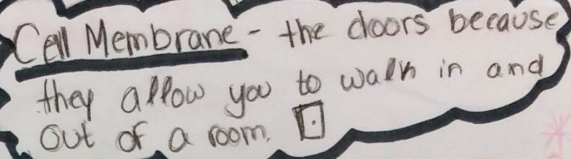 Cell Membrane - the doors because
they allow you to walk in and
out of a room.